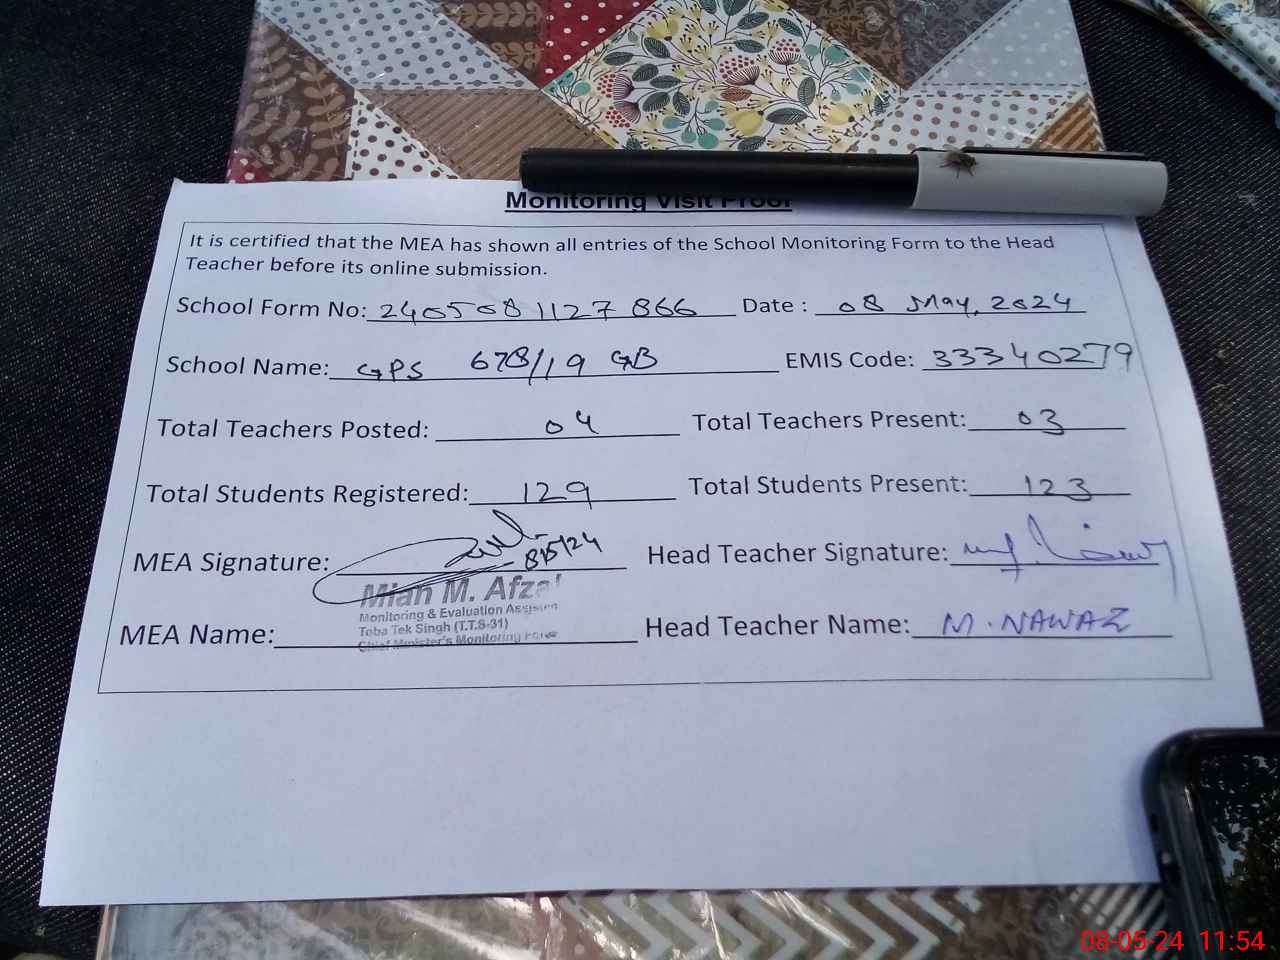 Monitoring Visit Proof
It is certified that the MEA has shown all entries of the School Monitoring Form to the Head
Teacher before its online submission.
School Form No: 2405081127866 Date : 08 May, 2024
School Name: GPS 678/19 GB EMIS Code: 33340279
Total Teachers Posted: 04 Total Teachers Present: 03
Total Students Registered: 129 Total Students Present: 123
MEA Signature: 8/5/24 Head Teacher Signature:
Mian M. Afzal
Monitoring & Evaluation Assistant
Toba Tek Singh (T.T.S-31)
Chief Minister's Monitoring Force
MEA Name: Head Teacher Name: M. NAWAZ
08-05-24 11:54